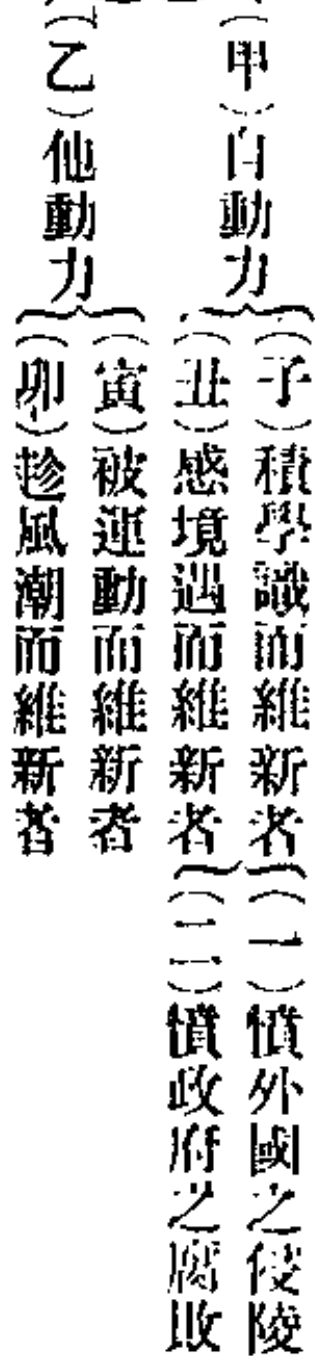 （甲）自動力
（子）積學識而維新者
（丑）感境遇而維新者
（一）憤外國之侵陵
（二）憤政府之腐敗
（乙）他動力
（寅）被運動而維新者
（卯）趁風潮而維新者